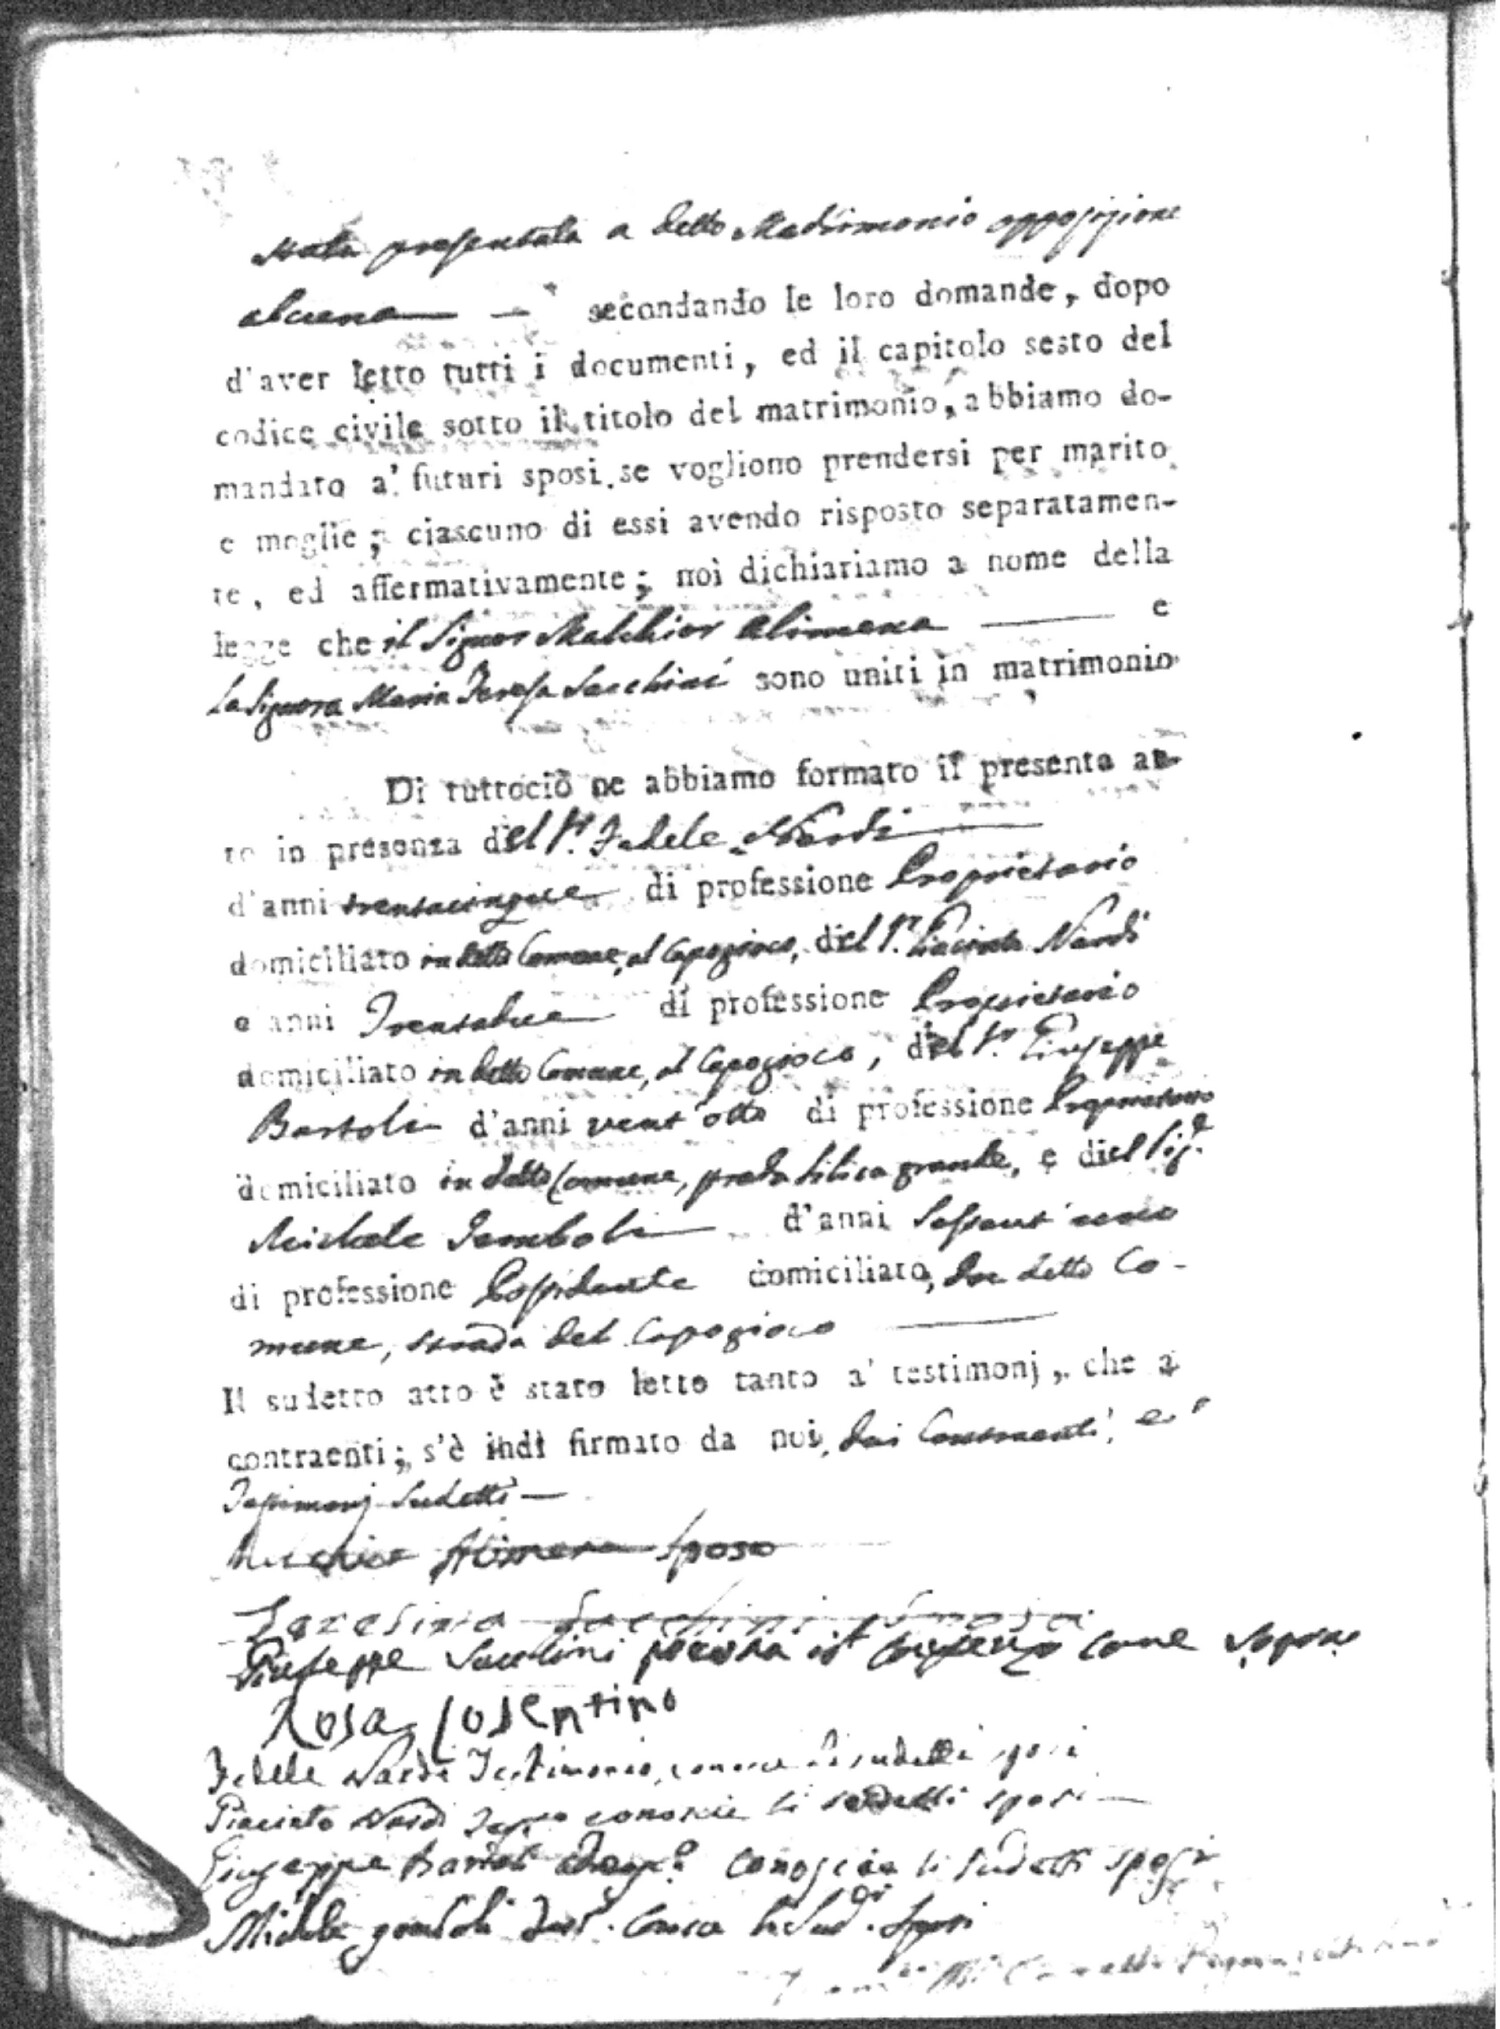 stata presentata a detto Matrimonio opposizione
alcuna — secondando le loro domande, dopo
d'aver letto tutti i documenti, ed il capitolo sesto del
codice civile sotto il titolo del matrimonio, abbiamo do-
mandato a' futuri sposi se vogliono prendersi per marito
e moglie; ciascuno di essi avendo risposto separatamen-
te, ed affermativamente; noi dichiariamo a nome della
legge che il Signor Malchior Alimena — e
La Signora Maria Teresa Sacchini sono uniti in matrimonio
Di tuttociò ne abbiamo formato il presente at-
to in presenza del Sr. Fedele Nardi —
d'anni trentacinque di professione Proprietario
domiciliato in detto Comune, al Capogioco, del Sr. Giacinto Nardi
e anni Trentadue di professione Proprietario
domiciliato in detto Comune, al Capogioco, del Sr. Giuseppe
Bartoli d'anni vent'otto di professione Proprietario
domiciliato in detto Comune, grande, e del Sigr.
Michele d'anni Sessant'uno
di professione Possidente domiciliato, in detto Co-
mune, strada del Capogioco —
Il sudetto atto è stato letto tanto a' testimonj, che a
contraenti; s'è indi firmato da noi, dai Contraenti, e
Testimonj sudetti —
Alimena Sposo
Teresina Sacchini Sposa
Giuseppe Sacchini presta il consenzo come sopra
Rosa Cosentino
Fedele Nardi Testimonio, conosce li sudetti sposi
Giacinto Nardi conoscie li sudetti sposi —
Giuseppe Bartoli conoscie li sudetti sposi
Michele li Sudti. Sposi